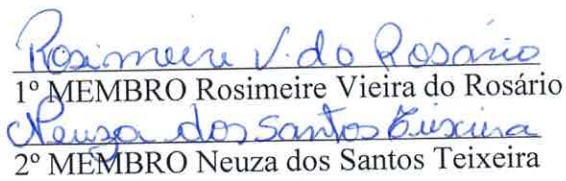 Rosimeire V. do Rosário
1º MEMBRO Rosimeire Vieira do Rosário
Neuza dos Santos Teixeira
2º MEMBRO Neuza dos Santos Teixeira